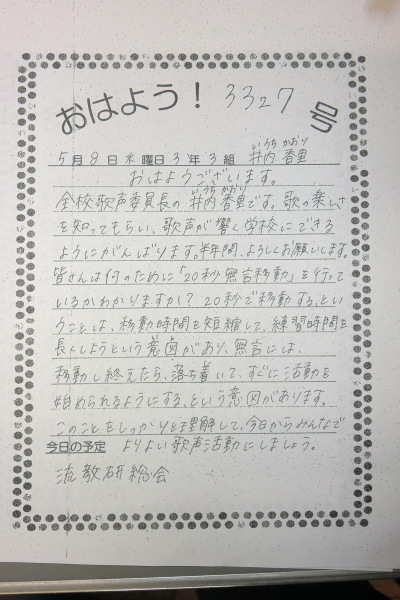 おはよう！3327号
いうち かおり
5月8日水曜日3年3組 井内 香里
おはようございます。
いうち かおり
全校歌声委員長の井内香里です。歌の楽しさ
を知ってもらい、歌声が響く学校にできる
ようにがんばります。半年間、よろしくお願いします。
皆さんは何のために「20秒無言移動」を行って
いるかわかりますか？20秒で移動する、とい
うことは、移動時間を短縮して、練習時間を
長くしようという意図があり、無言には、
移動し終えたら、落ち着いて、すぐに活動を
始められるようにする、という意図があります。
このことをしっかりと理解して、今日からみんなで
今日の予定 よりよい歌声活動にしましょう。
流教研総会